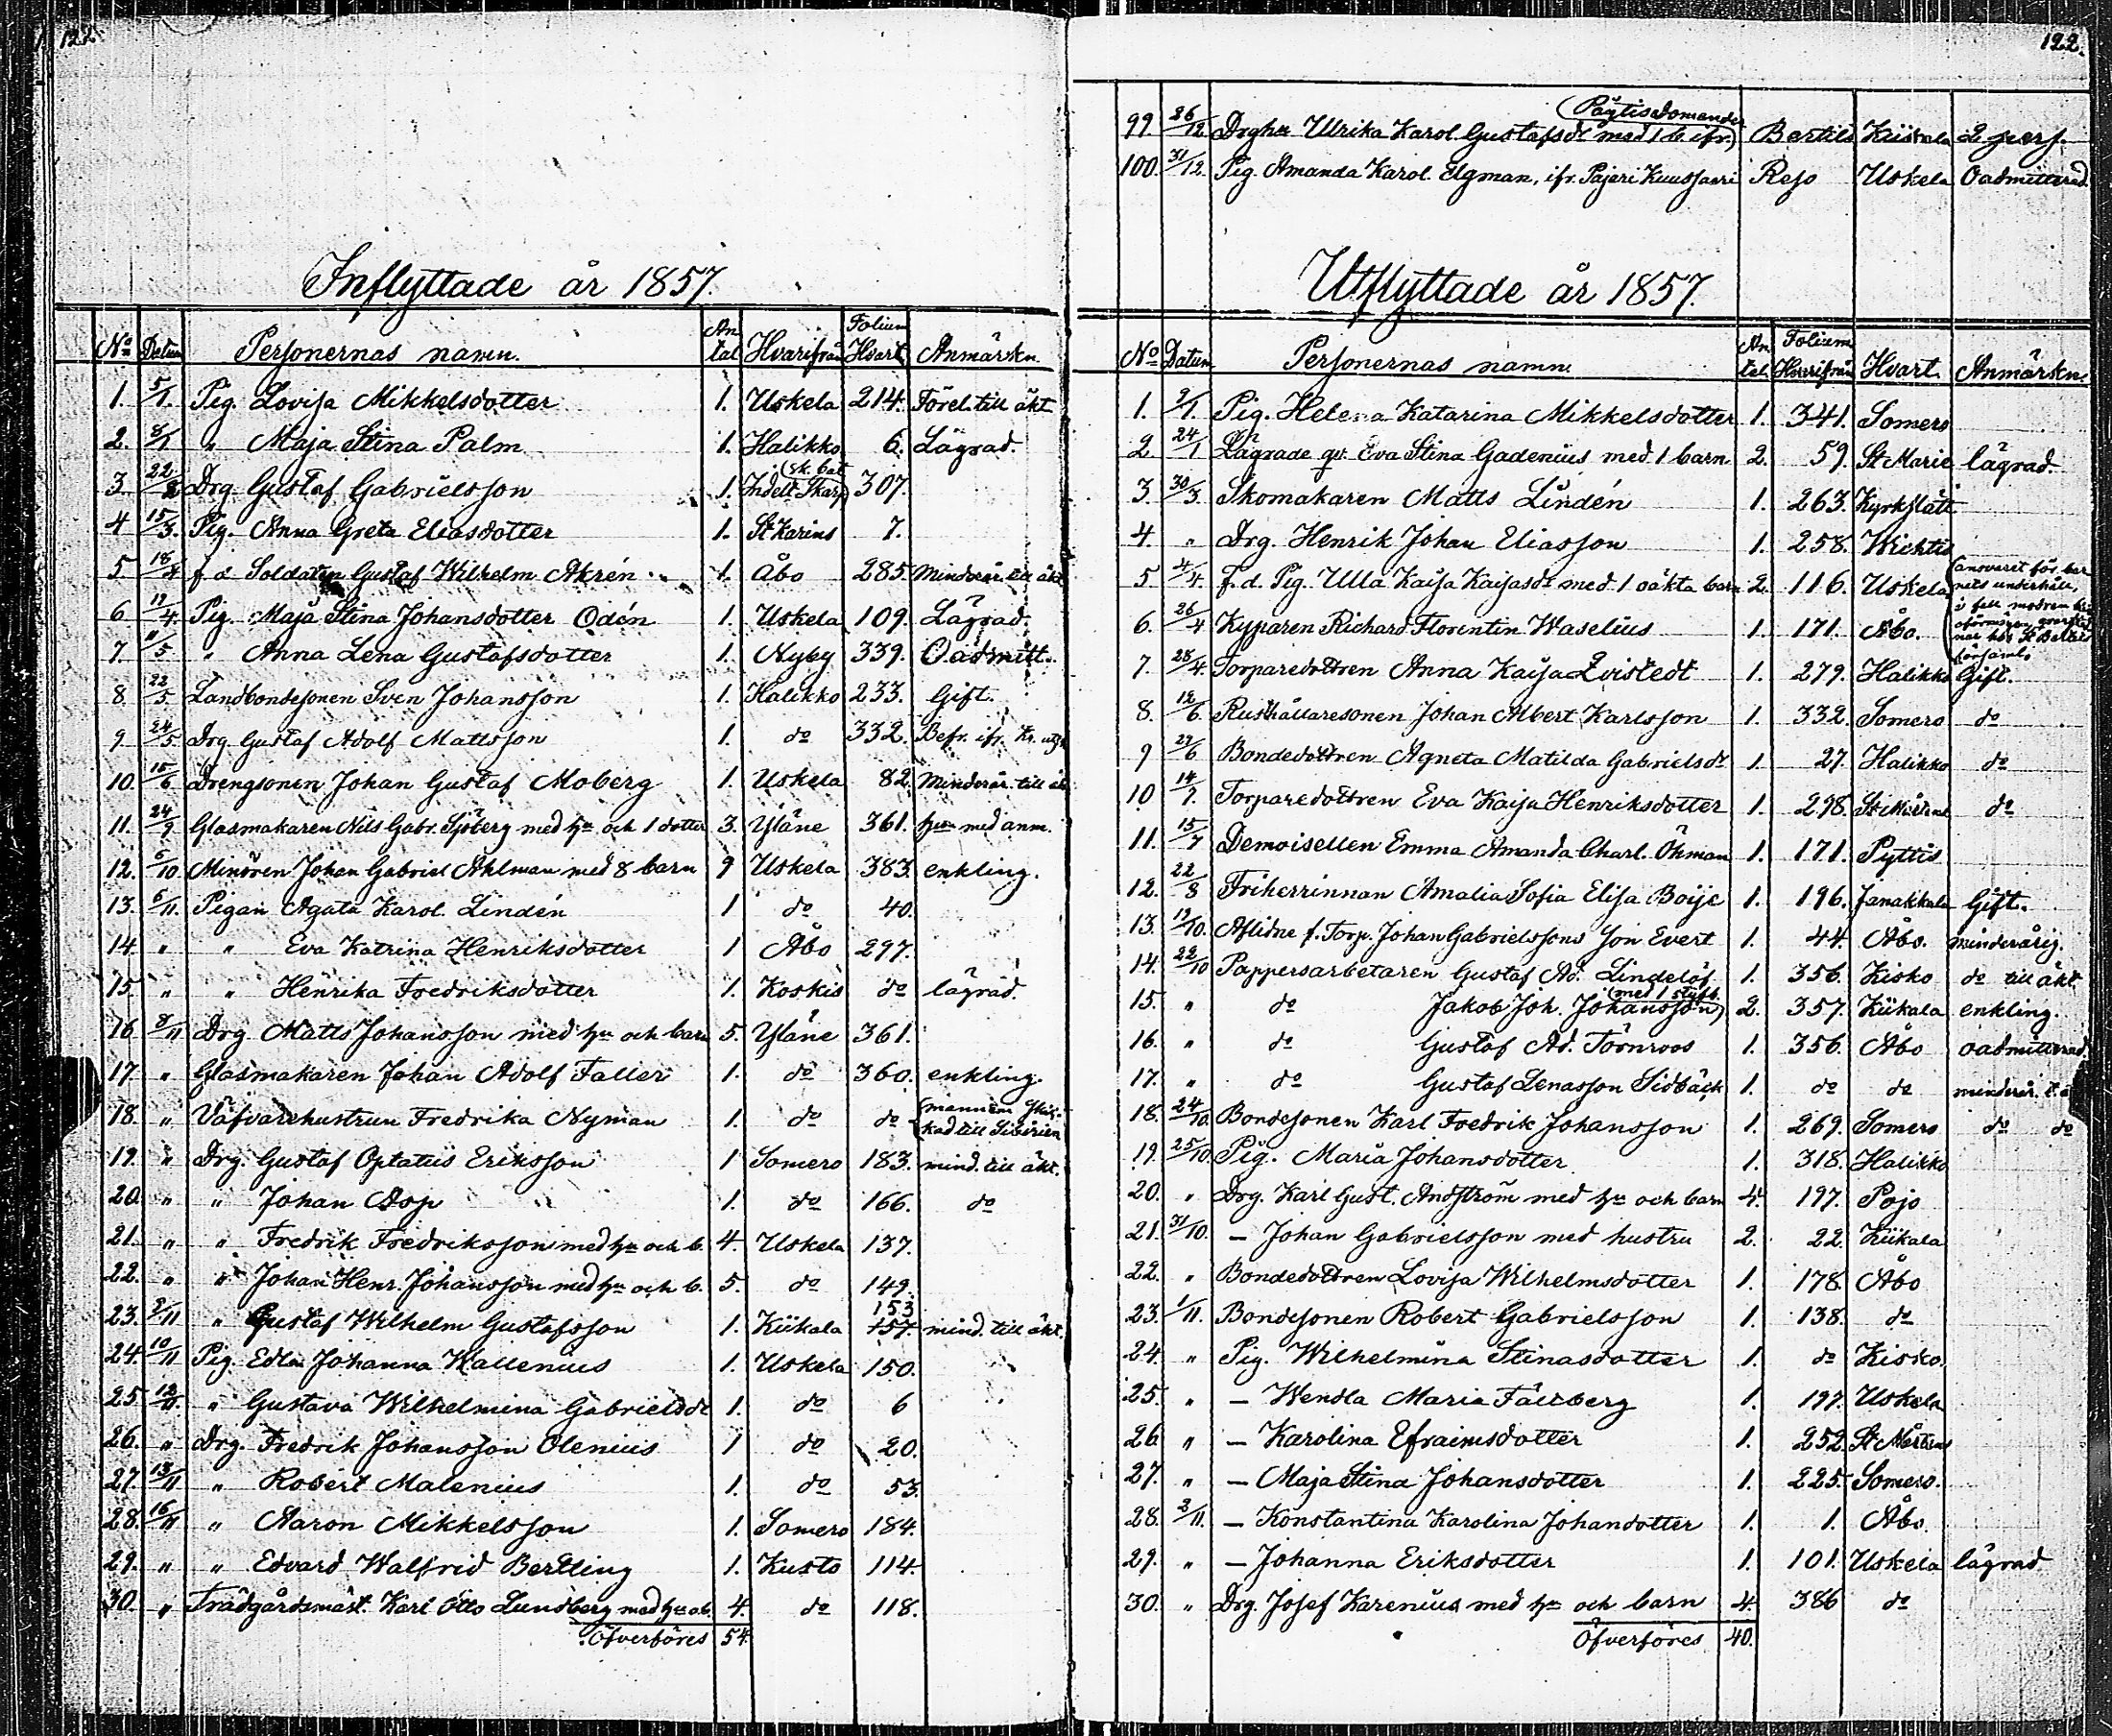 122.
Inflyttade år 1857.
No Datum Personernas namn. Antal Hvarifrån Folium Hvart Anmärkn.
1. 5/1. Pig. Lovisa Mikkelsdotter 1. Uskela 214. Förel. till äkt
2. 8/1 " Maja Stina Palm 1. Halikko 6. Lägrad.
3. Drg. Gustaf Gabrielsson 1. Indelt Skarp (sk. bat 307.
4 15/3. Pig. Anna Greta Eliasdotter 1. St Karins 7.
5 18/4 f d Soldaten Gustaf Wilhelm Akrén 1. Åbo 285. Minderår. till äkt
6 19/4. Pig. Maja Stina Johansdotter Odén 1. Uskela 109. Lägrad.
7. 11/5 " Anna Lena Gustafsdotter 1. Nyby 339. Oadmitt.
8. 22/5. Landbondesonen Sven Johansson 1. Halikko 233. Gift.
9 24/5. Drg. Gustaf Adolf Mattsson 1. do 332. Befr. ifr. Kr. utg
10. 15/6. Drengsonen Johan Gustaf Moberg 1. Uskela 82. Minderår. till äk
11. 24/9 Glasmakaren Nils Gabr. Sjöberg med hu och 1 dotter 3. Yläne 361. hun med anm.
12. 5/10 Minören Johan Gabriel Ahlman med 8 barn 9 Uskela 383. enkling.
13. 6/11. Pigan Agata Karol. Lindén 1 do 40.
14. " " Eva Katrina Henriksdotter 1 Åbo 297.
15. " " Henrika Fredriksdotter 1. Koskis do lägrad.
16. 8/11 Drg. Matts Johansson med hu och barn 5. Yläne 361.
17. " Glasmakaren Johan Adolf Faller 1. do 360. enkling.
18. " Väfvarehustrun Fredrika Nyman 1. do do (mannen skickad till Sibirien
19. " Drg. Gustaf Optatus Eriksson 1 Somero 183. mind. till äkt.
20. " " Johan Asp 1. do 166. do
21. " " Fredrik Fredriksson med hu och b. 4. Uskela 137.
22. " " Johan Henr. Johansson med hu och b. 5. do 149.
23. 9/11 " Gustaf Wilhelm Gustafsson 1. Kiikala 153 157. mind. till äkt.
24. 10/11 Pig. Edla Johanna Wallenius 1. Uskela 150.
25. 12/11. " Gustava Wilhelmina Gabrielsdr 1. do 6
26. " Drg. Fredrik Johansson Olenius 1 do 20.
27. 13/11 " Robert Malenius 1. do 53.
28. 16/11 " Aaron Mikkelsson 1. Somero 184.
29. " " Edvard Walfrid Bertling 1. Kusto 114.
30. " Trädgårdsmäst. Karl Otto Lundberg med hu o b. 4. do 118.
Öfverföres 54.
122.
99. 26/12. Drghu Ulrika Karol. Gustafsdr med 1 b. ifr. (Päytis Bertils Kiikala 2 pers.
100. 31/12. Pig. Amanda Karol. Elgman, ifr. Pajari Kuusjoeri Reso Uskela Oadmitterad
Utflyttade år 1857.
No Datum Personernas namn. Antal Folium Hvarifrån Hvart. Anmärkn.
1. 9/1. Pig. Helena Katarina Mikkelsdotter 1. 341. Somero
2 24/1 Lägrade qv. Eva Stina Gadenius med 1 barn 2. 59. St Marie lägrad.
3. 30/3. Skomakaren Matts Lindén 1. 263. Kyrkslätt
4. " Drg. Henrik Johan Eliasson 1. 258. Wichtis
5. 4/4. f. d. Pig. Ulla Kaija Kaijasdr med 1 oäkta barn 2. 116. Uskela (ansvaret för barnets underhåll, i fall modren blir oförmögen, qvarstannar hos St Bertils församl.
6. 26/4 Kyparen Richard Florentin Waselius 1. 171. Åbo.
7. 28/4. Torparedottren Anna Kaija Qvistedt 1. 279. Halikko Gift.
8. 12/6. Rusthållaresonen Johan Albert Karlsson 1. 332. Somero do
9 23/6 Bondedottren Agneta Matilda Gabrielsdr 1. 27. Halikko do
10 14/7. Torparedottren Eva Kaija Henriksdotter 1. 298. St Mårtens do
11. 15/7 Demoisellen Emma Amanda Charl. Öhman 1. 171. Pyttis
12. 22/8 Friherrinnan Amalia Sofia Elisa Boije 1. 196. Janakkala Gift.
13. 19/10. Aflidne f. Torp. Johan Gabrielssons son Evert 1. 44. Åbo. minderårig.
14. 22/10 Pappersarbetaren Gustaf Ad. Lindelöf 1. 356. Kisko do till äkt.
15. " do Jakob Joh. Johansson (med 1 styfb.) 2. 357. Kiikala enkling.
16. " do Gustaf Ad. Törnroos 1. 356. Åbo oadmitterad.
17. " do Gustaf Lenasson Sidbäck 1. do do minderår. t. ä
18. 24/10. Bondesonen Karl Fredrik Johansson 1. 269. Somero do do
19. 25/10. Pig. Maria Johansdotter 1. 318. Halikko
20. " Drg. Karl Gust. Andström med hu och barn 4. 197. Pojo
21. 31/10. - Johan Gabrielsson med hustru 2. 22. Kiikala
22. " Bondedottren Lovisa Wilhelmsdotter 1. 178. Åbo
23. 1/11. Bondesonen Robert Gabrielsson 1. 138. do
24. " Pig. Wilhelmina Stinasdotter 1. do Kisko.
25. " - Wendla Maria Fällberg 1. 197. Uskela
26. " - Karolina Efraimsdotter 1. 252. St Mårtens
27. " - Maja Stina Johansdotter 1. 225. Somero.
28. 2/11. - Konstantina Karolina Johandotter 1. 1. Åbo.
29. " - Johanna Eriksdotter 1. 101. Uskela lägrad
30. " Drg. Josef Karenius med hu och barn 4. 386 do
Öfverföres 40.